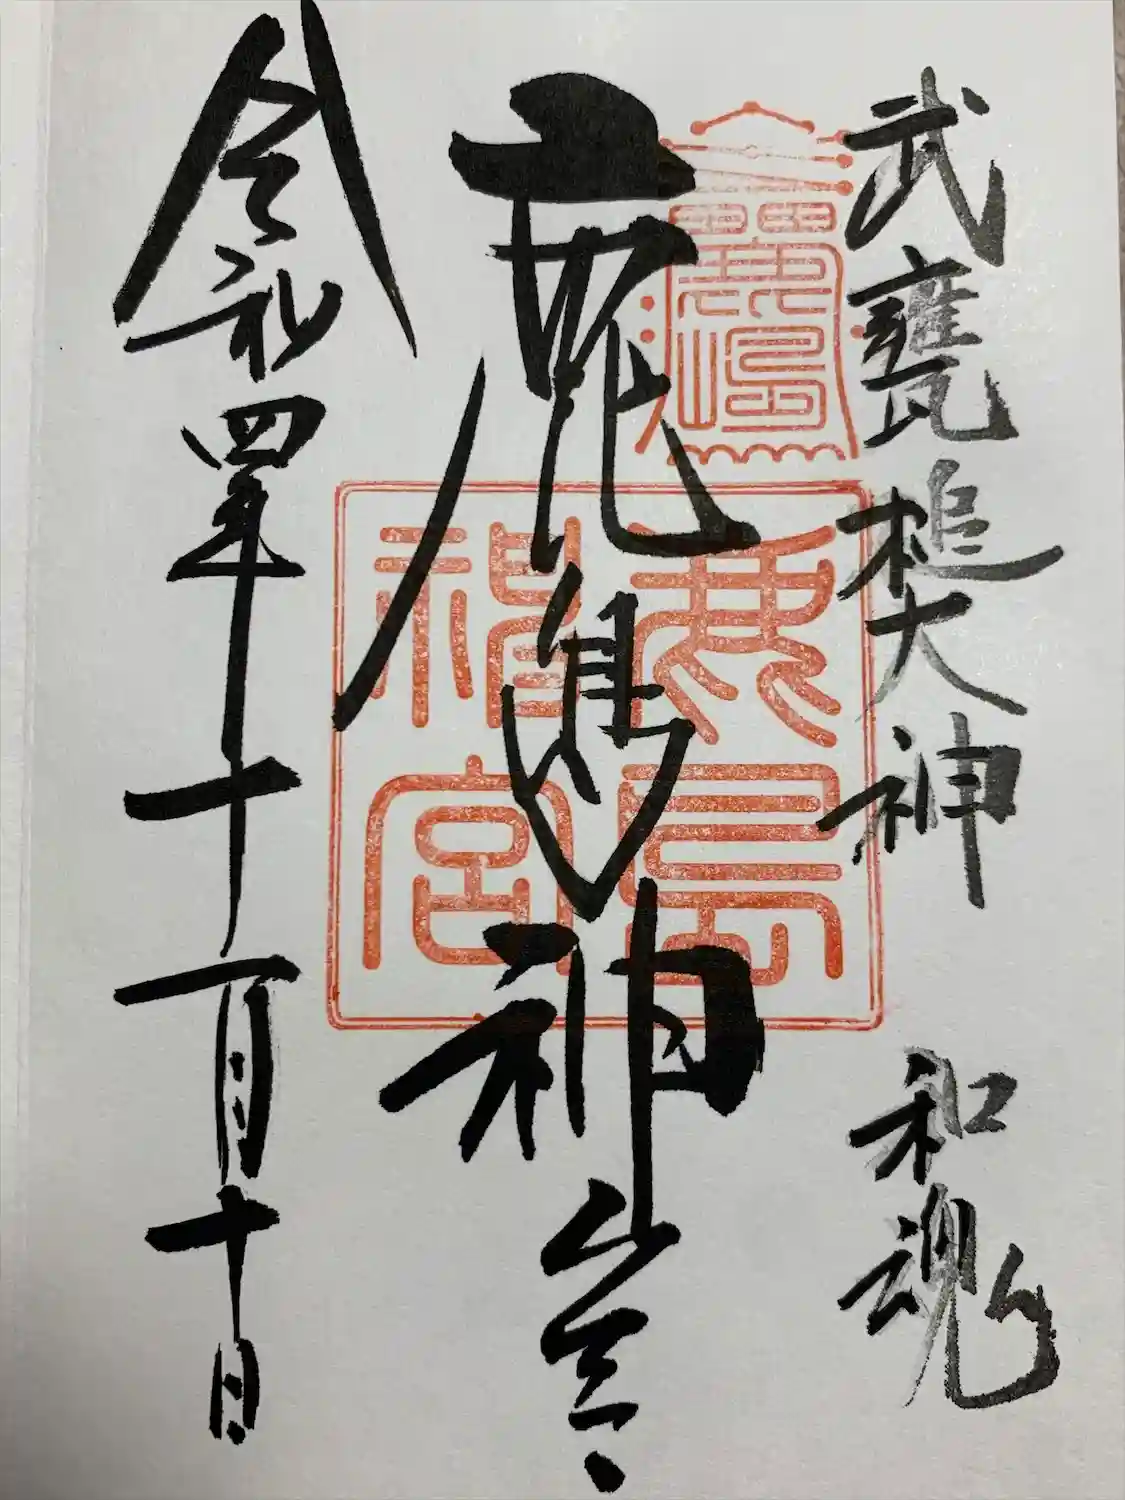 武甕槌大神 和魂
鹿島神宮
鹿嶋
鹿島
神宮
令和四年十一月十日